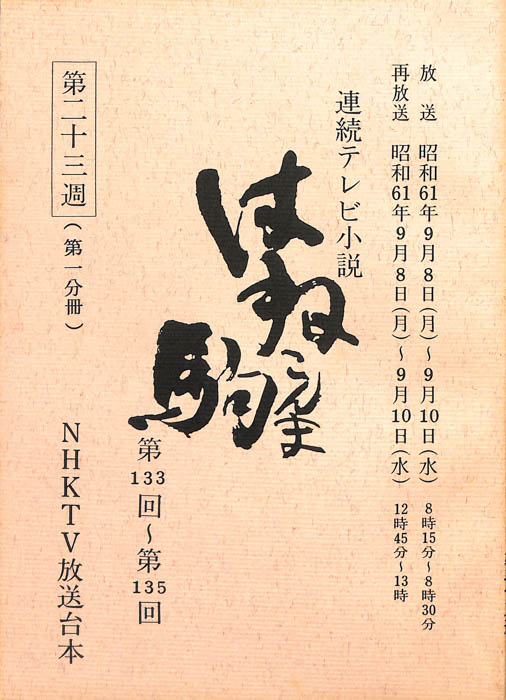 放送 昭和61年9月8日(月)~9月10日(水) 8時15分~8時30分
再放送 昭和61年9月8日(月)~9月10日(水) 12時45分~13時
連続テレビ小説
はね駒
こんま
第133回~第135回
第二十三週(第一分冊)
NHKTV放送台本